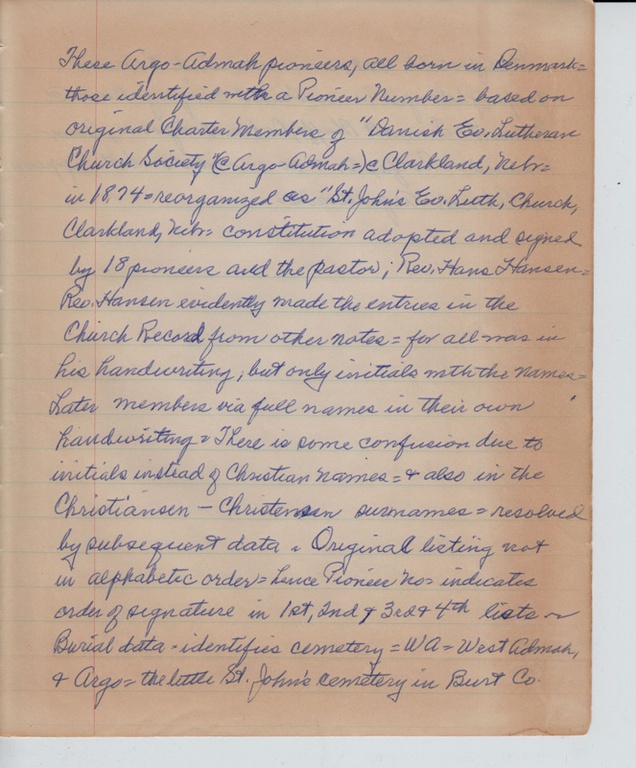 These Argo-Admah pioneers, all born in Denmark=
those identified with a Pioneer Number= based on
original Charter Members of "Danish Ev. Lutheran
Church Society"(@ Argo-Admah=)@ Clarkland, Nebr=
in 1874=reorganized as "St. John's Ev. Luth, Church,
Clarkland, Nebr= constitution adopted and signed
by 18 pioneers and the pastor; Rev. Hans Hansen=
Rev. Hansen evidently made the entries in the
Church Record from other notes= for all was in
his handwriting; but only initials with the names=
Later members via full names in their own
handwriting= There is some confusion due to
initials instead of Christian names=& also in the
Christiansen - Christensen surnames= resolved
by subsequent data. Original listing not
in alphabetic order= hence Pioneer No= indicates
order of signature in 1st, 2nd & 3rd & 4th lists ~
Burial data-identifies cemetery=WA=West Admah,
& Argo= the little St. John's cemetery in Burt Co.